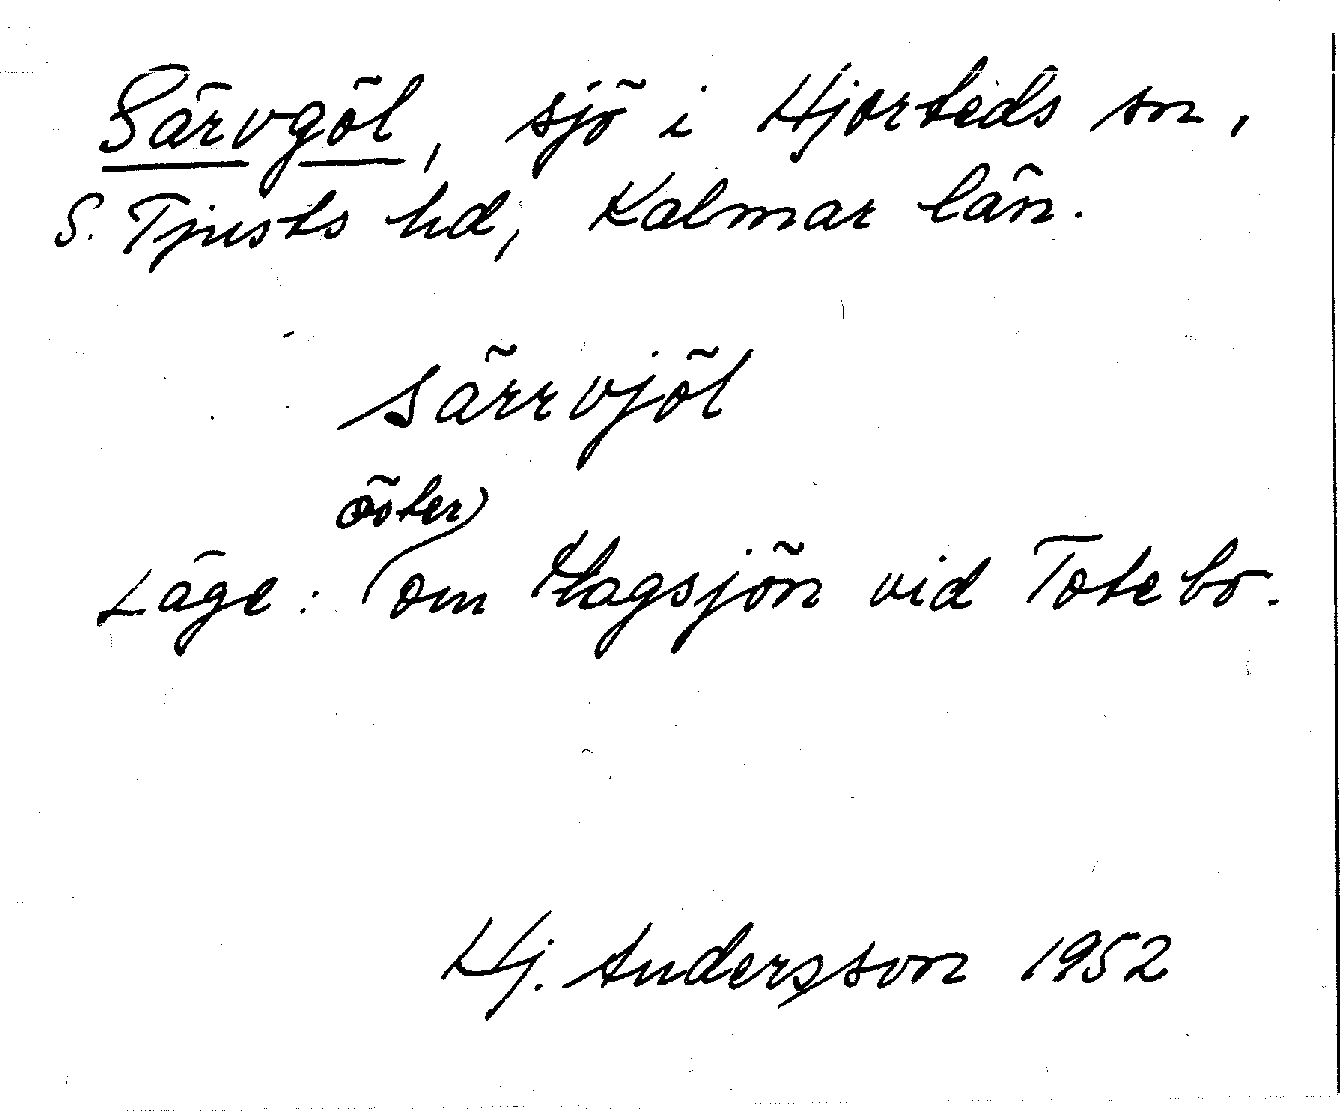 Särvgöl, sjö i Hjorteds sn,
S. Tjusts hd, Kalmar län.
särrvjöl
öster
Läge: om Hagsjön vid Totebo.
Hj. Andersson 1952